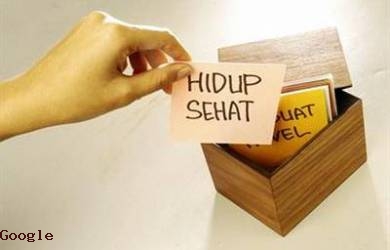 HIDUP
SEHAT
UAT
VEL
Google